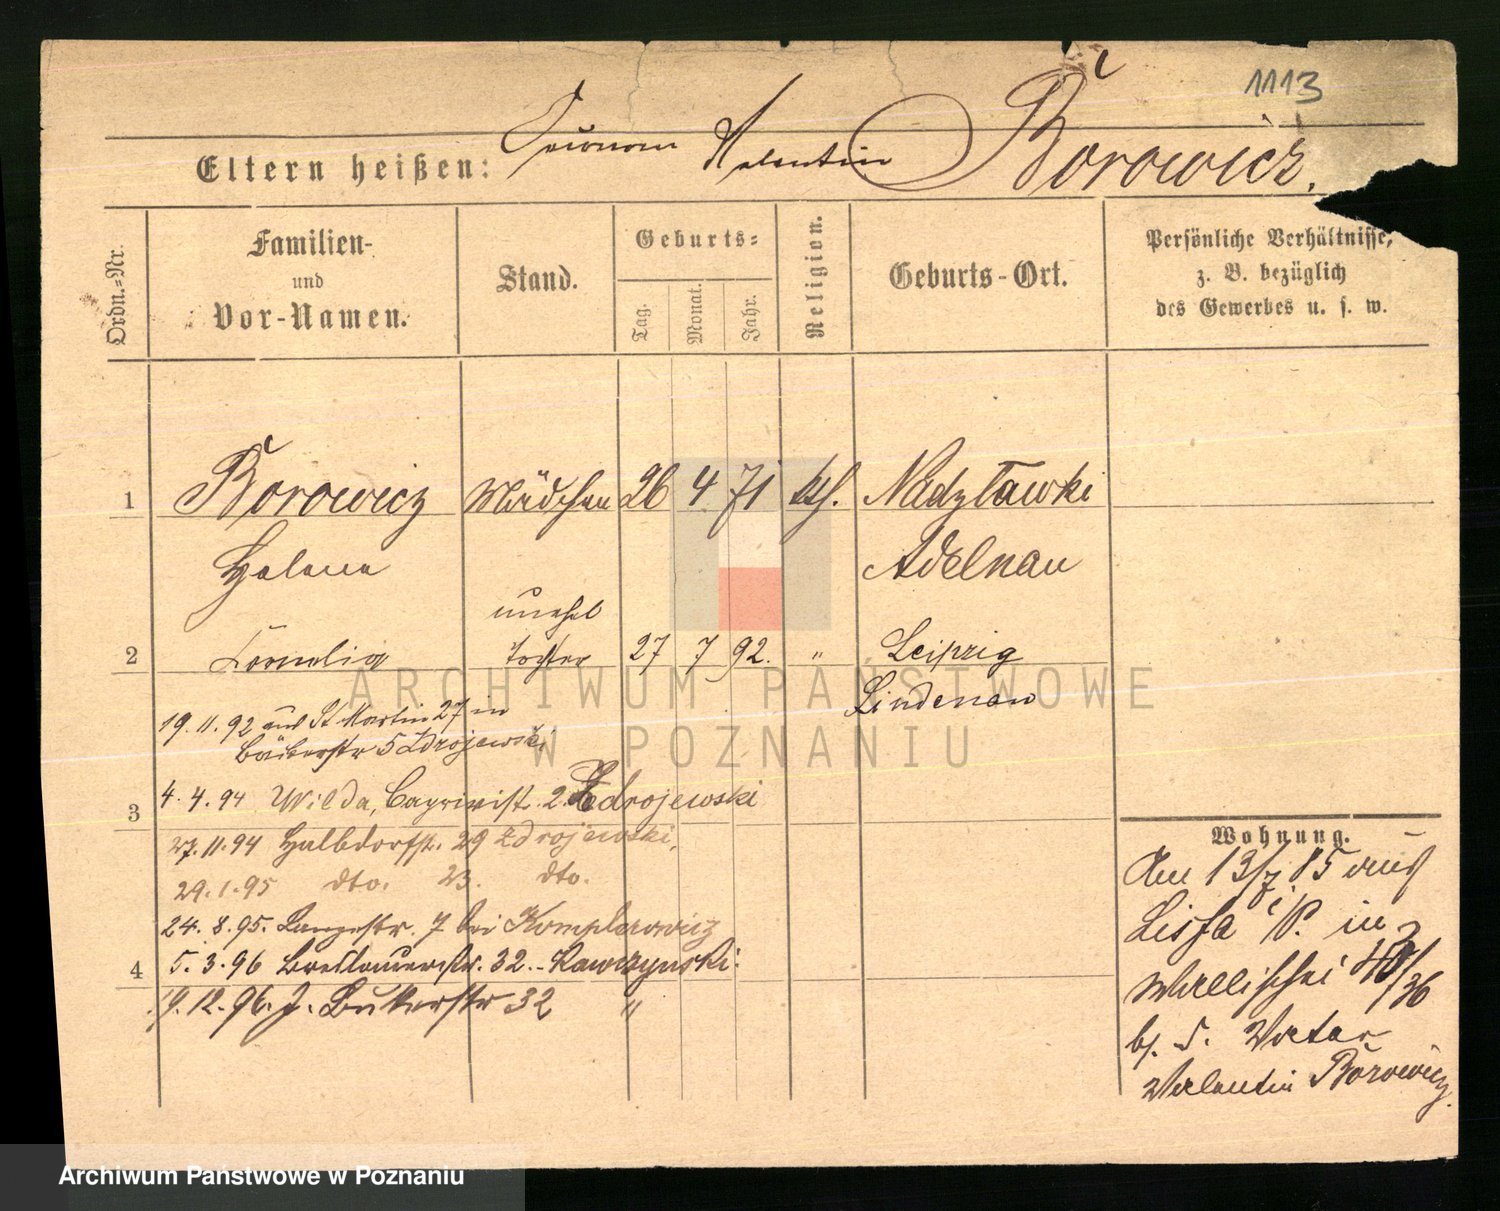 1113
Eltern heißen: Oeconom Valentin Borowicz.
Ordn.-Nr.
Familien-
und
Vor-Namen.
Stand.
Geburts-
Tag. Monat. Jahr.
Religion.
Geburts-Ort.
Persönliche Verhältnisse,
z. B. bezüglich
des Gewerbes u. s. w.
1 Borowicz Mädchen 26 4 71 kth. Nadzławki
Helene Adelnau
unehel
2 Cornelia Tochter 27 7 92. " Leipzig
Lindenau
19.11.92 aus St Martin 27 in
Bäckerstr 5 Zdrojewski
3 4.4.94 Wilda, Caprivist. 2. Zdrojewski
27.11.94 Halbdorfstr. 29 Zdrojewski,
29.1.95 dto. 23. dto.
24.8.95. Langestr. 7 bei
4 5.3.96 Breslauerstr. 32.-Kawczynski.
12.96. J. 32 "
Wohnung.
Am 13/7. 85 aus
Lissa i/P. in
Wallischei 40/36
bei s. Vater
Valentin Borowicz.
ARCHIWUM PAŃSTWOWE
W POZNANIU
Archiwum Państwowe w Poznaniu